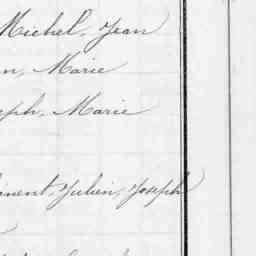 Michel, Jean
n, Marie
eph, Marie
inent, Julien, Joseph